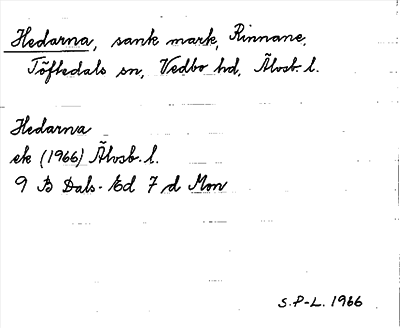 Hedarna, sank mark, Rinnane,
Töftedals sn, Vedbo hd, Älvsb. l.
Hedarna
ek (1966) Älvsb. l.
9 B Dals-Ed 7 d Mon
S.P-L. 1966